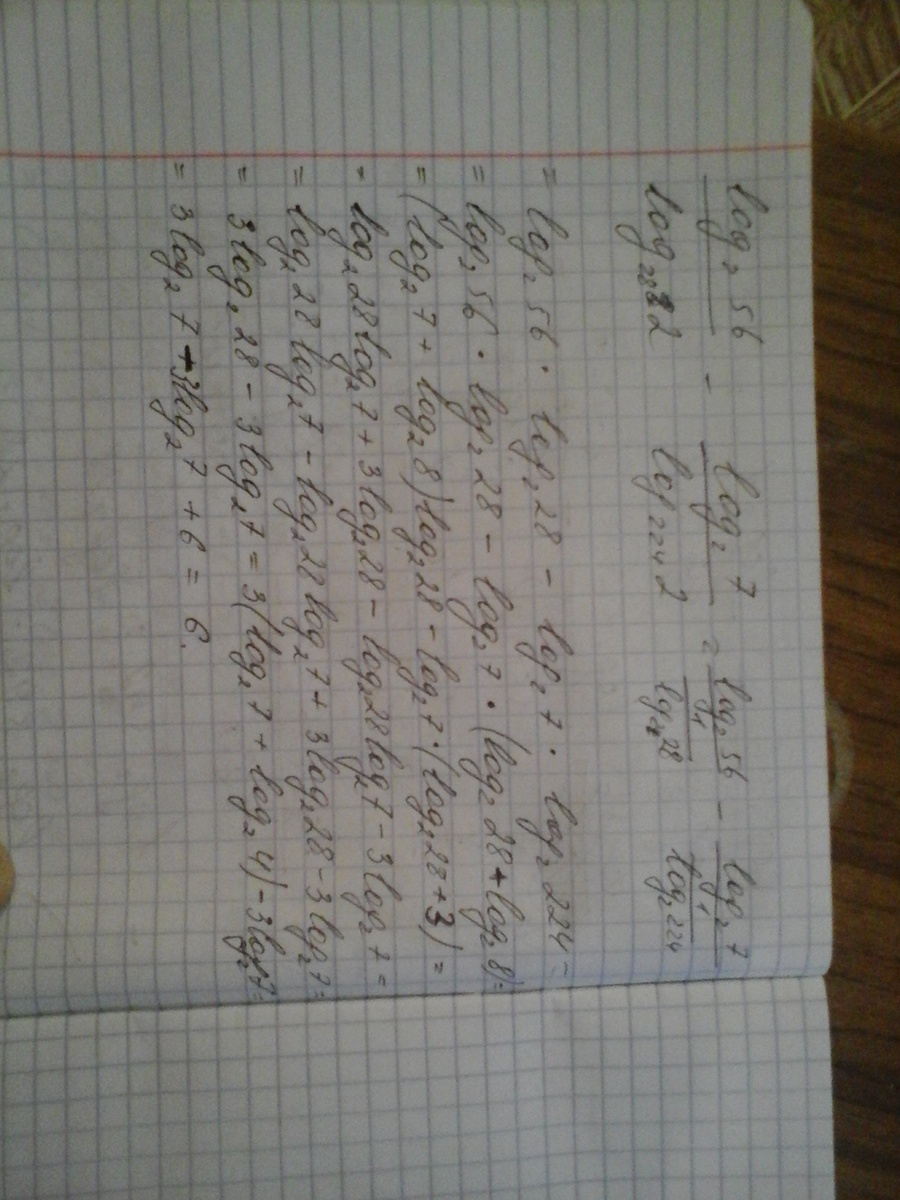 log₂ 56 / log₂₈ 2 - log₂ 7 / log₂₂₄ 2 = log₂ 56 / (1 / log₂ 28) - log₂ 7 / (1 / log₂ 224)
= log₂ 56 · log₂ 28 - log₂ 7 · log₂ 224 =
= log₂ 56 · log₂ 28 - log₂ 7 · (log₂ 28 + log₂ 8) =
= (log₂ 7 + log₂ 8) log₂ 28 - log₂ 7 · (log₂ 28 + 3) =
= log₂ 28 log₂ 7 + 3 log₂ 28 - log₂ 28 log₂ 7 - 3 log₂ 7 =
= log₂ 28 log₂ 7 - log₂ 28 log₂ 7 + 3 log₂ 28 - 3 log₂ 7 =
= 3 log₂ 28 - 3 log₂ 7 = 3 (log₂ 7 + log₂ 4) - 3 log₂ 7 =
= 3 log₂ 7 - 3 log₂ 7 + 6 = 6.